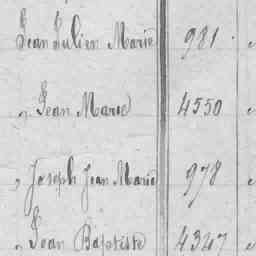 Jean Julien Marie 981
„ Jean Marie 4550
„ Joseph Jean Marie 978
„ Jean Baptiste 4347